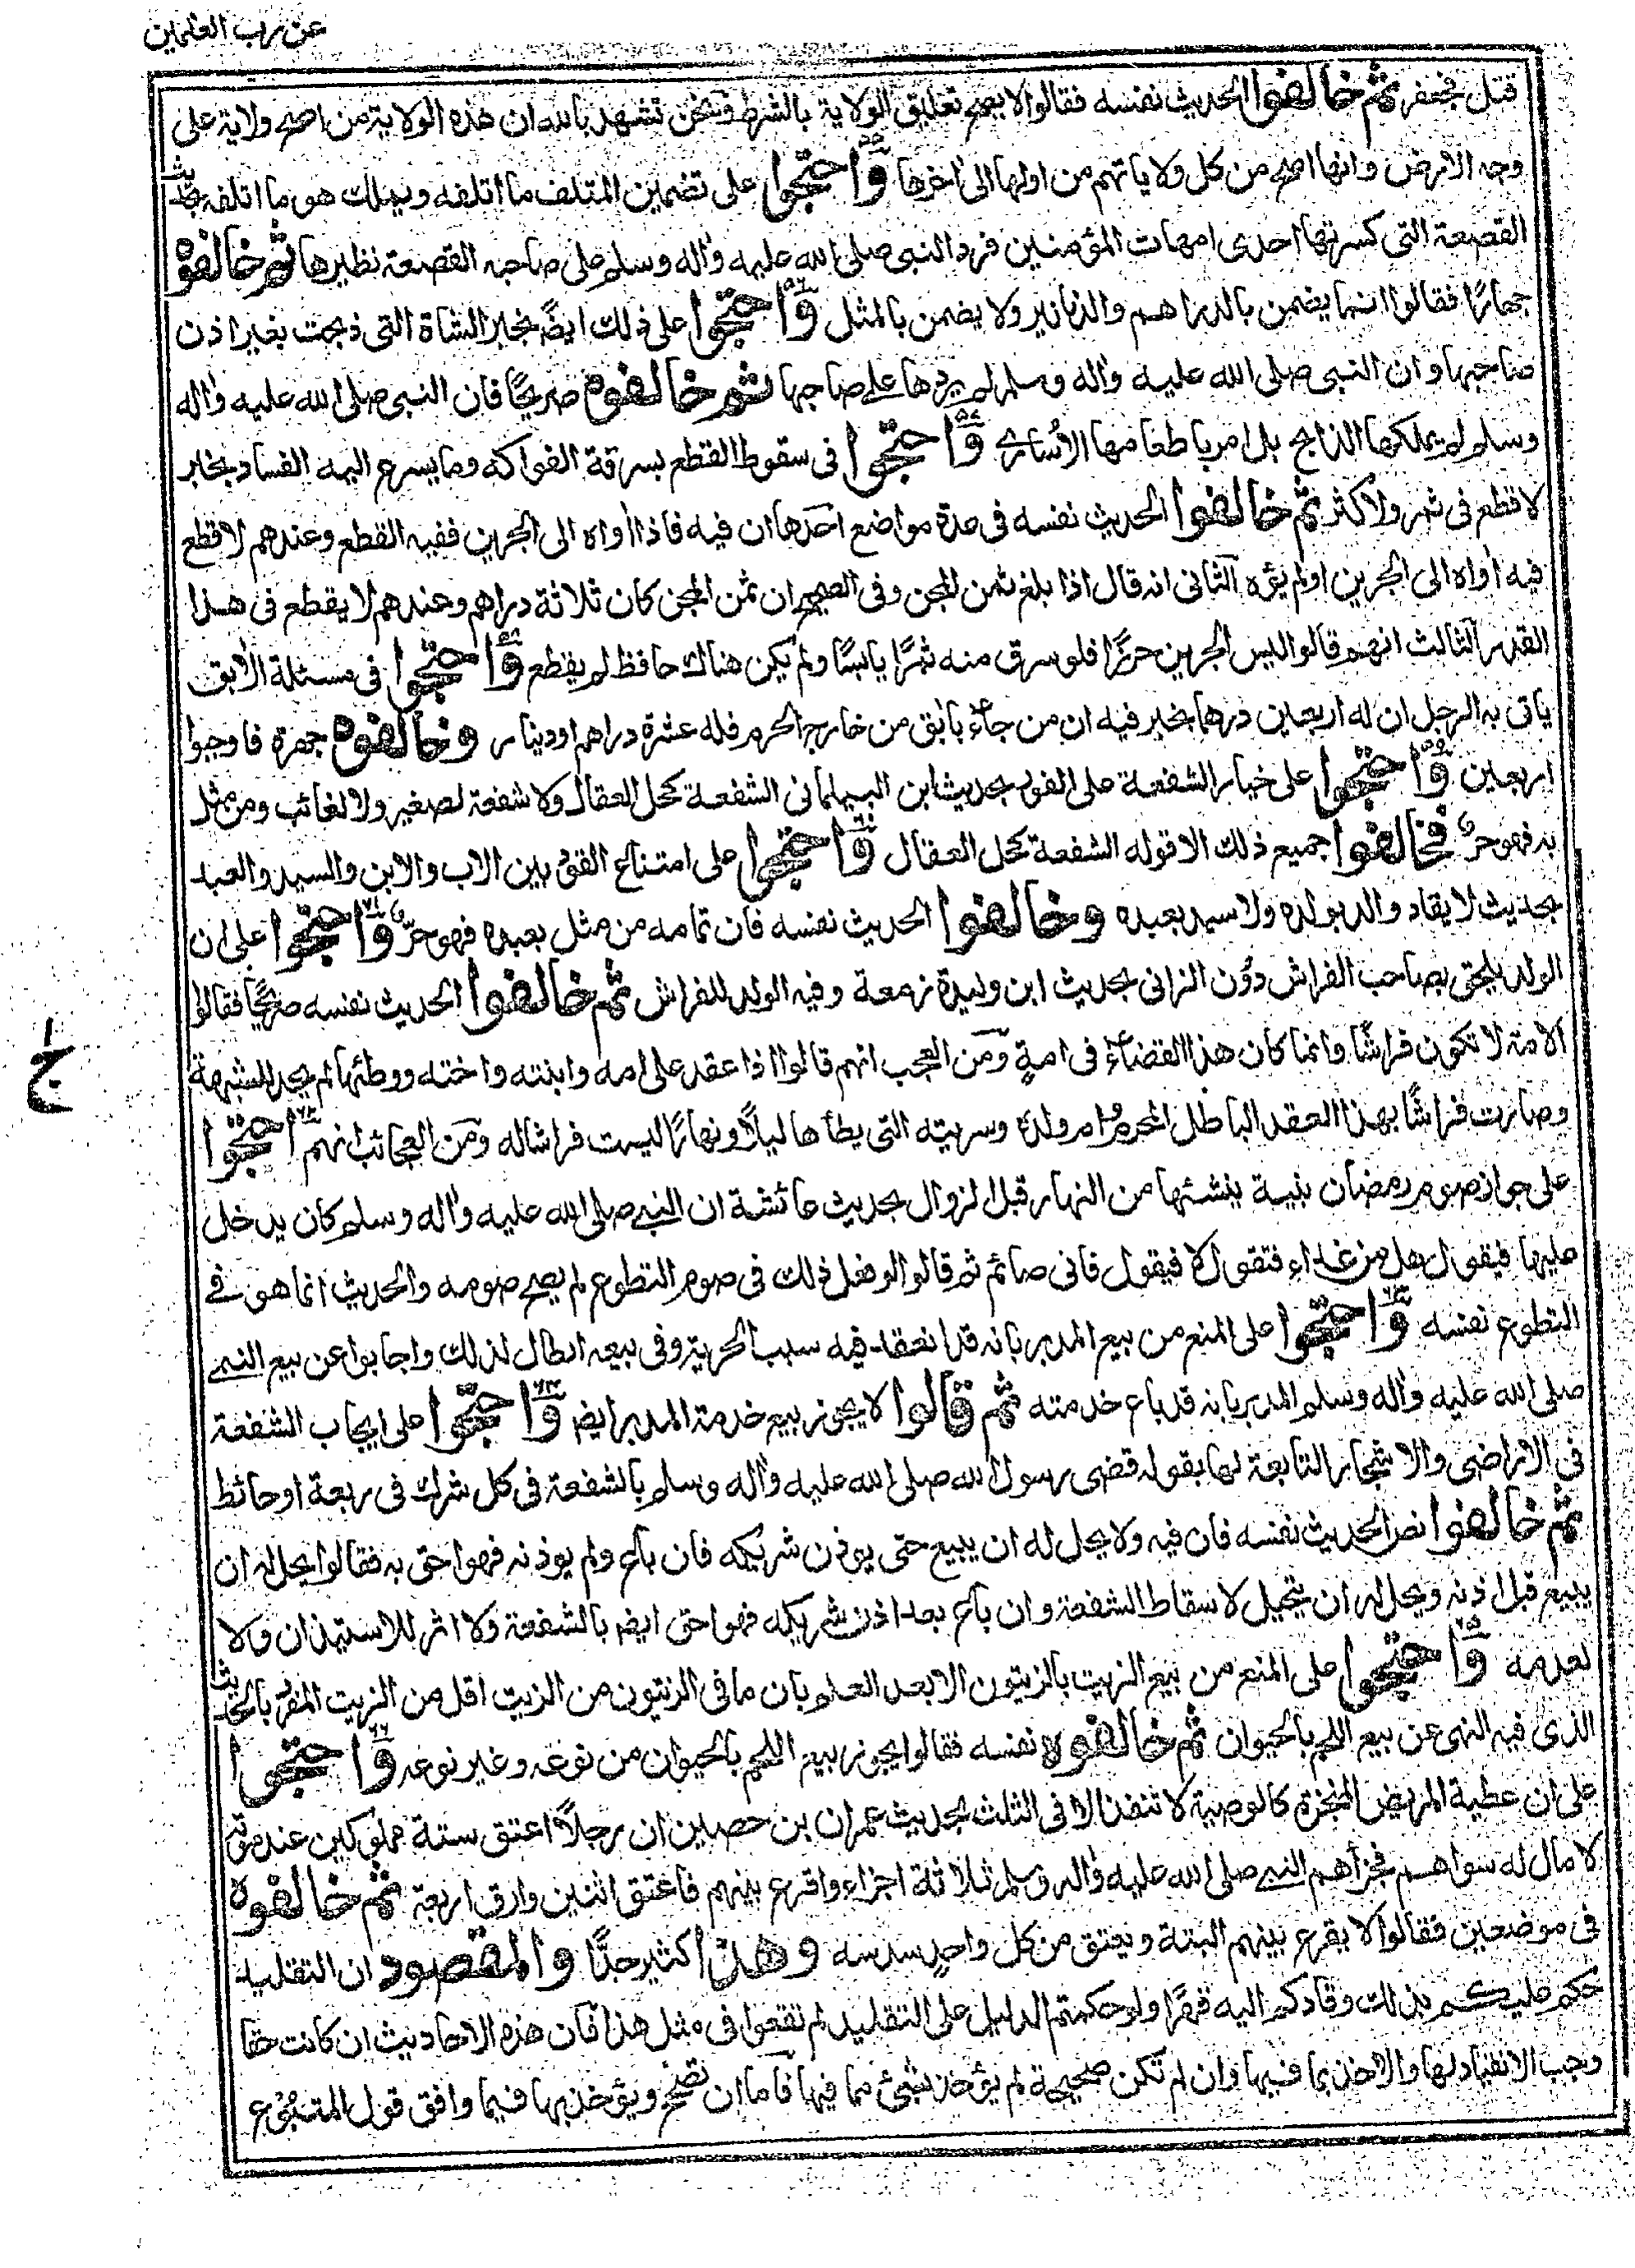 عن رب العلمين
قتل فجعفر ثم خالفوا الحديث نفسه فقالوا لا يصح تعليق الولاية بالشرط ونحن نشهد بالله ان هذه الولاية من اصح ولاية على
وجه الارض وانها اصح من كل ولاياتهم من اولها الى اخرها واحتجوا على تضمين المتلف ما اتلفه ويملك هو ما اتلفه بحديث
القصعة التى كسرتها احدى امهات المؤمنين فرد النبى صلى الله عليه واله وسلم على صاحبه القصعة نظيرها ثم خالفوه
جهارًا فقالوا انما يضمن بالدراهم والدنانير ولا يضمن بالمثل واحتجوا على ذلك ايضًا بخبر الشاة التى ذبحت بغير اذن
صاحبها وان النبى صلى الله عليه واله وسلم لم يردها على صاحبها ثم خالفوه صريحًا فان النبى صلى الله عليه واله
وسلم لم يملكها الذابح بل امر باطعامها الأسارى واحتجوا فى سقوط القطع بسرقة الفواكه وما يسرع اليه الفساد بخبر
لا قطع فى ثمر ولا كثر ثم خالفوا الحديث نفسه فى عدة مواضع احدها ان فيه فاذا اواه الى الجرين ففيه القطع وعندهم لا قطع
فيه اواه الى الجرين او لم يؤه الثانى انه قال اذا بلغ ثمن المجن وفى الصحيح ان ثمن المجن كان ثلاثة دراهم وعندهم لا يقطع فى هذا
القدر الثالث انهم قالوا ليس الجرين حرزًا فلو سرق منه ثمرًا يابسًا ولم يكن هناك حافظ لم يقطع واحتجوا فى مسئلة الابق
ياتى به الرجل ان له اربعين درهما بخبر فيه ان من جاء بابق من خارج الحرم فله عشرة دراهم او دينار وخالفوه جهرة فاوجبوا
اربعين واحتجوا على خيار الشفعة على الفور بحديث ابن البيلمانى الشفعة كحل العقال ولا شفعة لصغير ولا لغائب ومن مثل
به فهو حر فخالفوا جميع ذلك الا قوله الشفعة كحل العقال واحتجوا على امتناع القود بين الاب والابن والسيد والعبد
بحديث لا يقاد والد بولده ولا سيد بعبده وخالفوا الحديث نفسه فان تمامه من مثل بعبده فهو حرّ واحتجوا على ان
الولد يلحق بصاحب الفراش دون الزانى بحديث ابن وليدة زمعة وفيه الولد للفراش ثم خالفوا الحديث نفسه صريحًا فقالوا
الامة لا تكون فراشًا وانما كان هذا القضاء فى امةٍ ومن العجب انهم قالوا اذا عقد على امه وابنته واخته ووطئها لم يحد للشبهة
وصارت فراشًا بهذا العقد الباطل المحرم وام ولده وسريته التى يطأها ليلًا ونهارًا ليست فراشا له ومن العجائب انهم احتجّوا
على جواز صوم رمضان بنية ينشئها من النهار قبل الزوال بحديث عائشة ان النبى صلى الله عليه واله وسلم كان يدخل
عليها فيقول هل من غداء فتقول لا فيقول فانى صائم ثم قالوا لو فعل ذلك فى صوم التطوع لم يصح صومه والحديث انما هو فى
التطوع نفسه واحتجوا على المنع من بيع المدبر بانه قد انعقد فيه سبب الحرية وفى بيعه ابطال لذلك واجابوا عن بيع النبى
صلى الله عليه واله وسلم المدبر بانه قد باع خدمته ثم قالوا لا يجوز بيع خدمة المدبر ايضا واحتجّوا على ايجاب الشفعة
فى الاراضى والاشجار التابعة لها بقوله قضى رسول الله صلى الله عليه واله وسلم بالشفعة فى كل شرك فى ربعة او حائط
ثم خالفوا نص الحديث نفسه فان فيه ولا يحل له ان يبيع حتى يوذن شريكه فان باع ولم يوذنه فهو احق به فقالوا يحل له ان
يبيع قبل اذنه ويحل له ان يتحيل لاسقاط الشفعة وان باع بعد اذن شريكه فهو احق ايضا بالشفعة ولا اثر للاستيذان ولا
لعدمه واحتجوا على المنع من بيع الزيت بالزيتون الا بعد العلم بان ما فى الزيتون من الزيت اقل من الزيت المفرد بالحديث
الذى فيه النهى عن بيع اللحم بالحيوان ثم خالفوه نفسه فقالوا يجوز بيع اللحم بالحيوان من نوعه وغير نوعه واحتجوا
على ان عطية المريض المنجزة كالوصية لا تنفذ الا فى الثلث بحديث عمران بن حصين ان رجلًا اعتق ستة مملوكين عند موته
لا مال له سواهم فجزأهم النبى صلى الله عليه واله وسلم ثلاثة اجزاء واقرع بينهم فاعتق اثنين وارق اربعة ثم خالفوه
فى موضعين فقالوا لا يقرع بينهم البتة ويعتق من كل واحدٍ سدسه وهذا كثير جدًّا والمقصود ان التقليد
حكم عليكم بذلك وقادكم اليه قهرًا ولو حكمتم الدليل على التقليد لم تقعوا فى مثل هذا فان هذه الاحاديث ان كانت حقا
وجب الانقياد لها والاخذ بما فيها وان لم تكن صحيحة لم يؤخذ بشئ مما فيها فاما ان تصح ويؤخذ بها فيما وافق قول المتبوع
ج ١